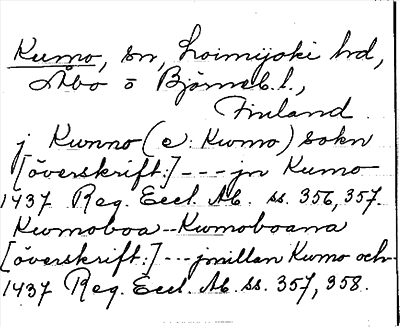 Kumo, sn, Loimijoki hd,
Åbo o Björneb. l.,
Finland
j Kwnno (e: Kwmo) sokn
[överskrift:] --- jn Kumo
1437 Reg. Eccl. Ab. ss. 356, 357.
Kwmoboa--Kwmoboana
[överskrift:] --- jmillan Kumo och
1437 Reg. Eccl. Ab. ss. 357, 358.